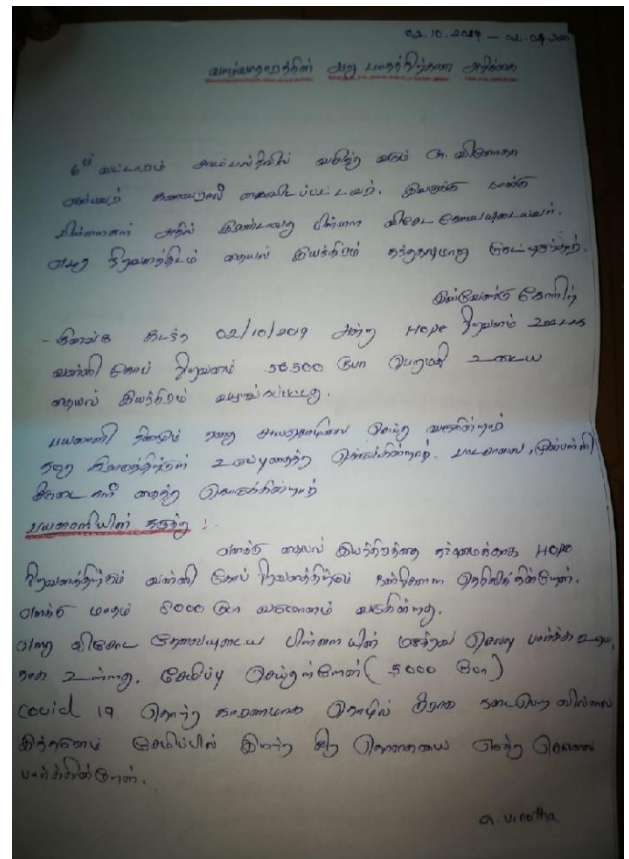 02.10.2019 – 02.04.200
வாழ்வாதாரத்தின் ஆறு மாதத்திற்கான அறிக்கை
6ம் வட்டாரம் அம்பலவன் வசித்து வரும் அ. வினோதா
என்பவர் கணவரால் கைவிடப்பட்டவர். இவருக்கு நான்கு
பிள்ளைகள் அதில் இரண்டாவது பிள்ளை விசேட தேவையுடையவர்.
எமது நிறுவனத்திடம் தையல் இயந்திரம் தந்துதவுமாறு கேட்டிருந்தார்.
இவ்வேண்டு கோளிற்
கிணங்க கடந்த 02/10/2019 அன்று Hope நிறுவனம் ஊடாக
வன்னி கோப் நிறுவனம் 30500 ரூபா பெறுமதி உடைய
தையல் இயந்திரம் வழங்கப்பட்டது.
பயனாளி தினமும் தனது சுயதொழிலை செய்து வருகின்றார்
தனது கிராமத்திற்குள் உடுப்புதைத்து கொடுக்கின்றார். பாடசாலை, முன்பள்ளி
சீருடைகள் தைத்து கொடுக்கின்றார்
பயனாளியின் கருத்து :
எனக்கு தையல் இயந்திரத்தை தந்தமைக்காக HOPE
நிறுவனத்திற்கும் வன்னி கோப் நிறுவனத்திற்கும் நன்றிகளை தெரிவிக்கின்றேன்.
எனக்கு மாதம் 6000 ரூபா வருமானம் வருகின்றது.
எனது விசேட தேவையுடைய பிள்ளையின் மருத்துவ செலவு பார்க்க உதவி
யாக உள்ளது. சேமிப்பு செய்துள்ளேன் (5000 ரூபா)
Covid 19 தொற்று காரணமாக தொழில் சீராக நடைபெறவில்லை
இத்தனைம் சேமிப்பில் இருந்த சிறு தொகையை எடுத்து செலவை
பார்க்கின்றேன்.
a. vinotha